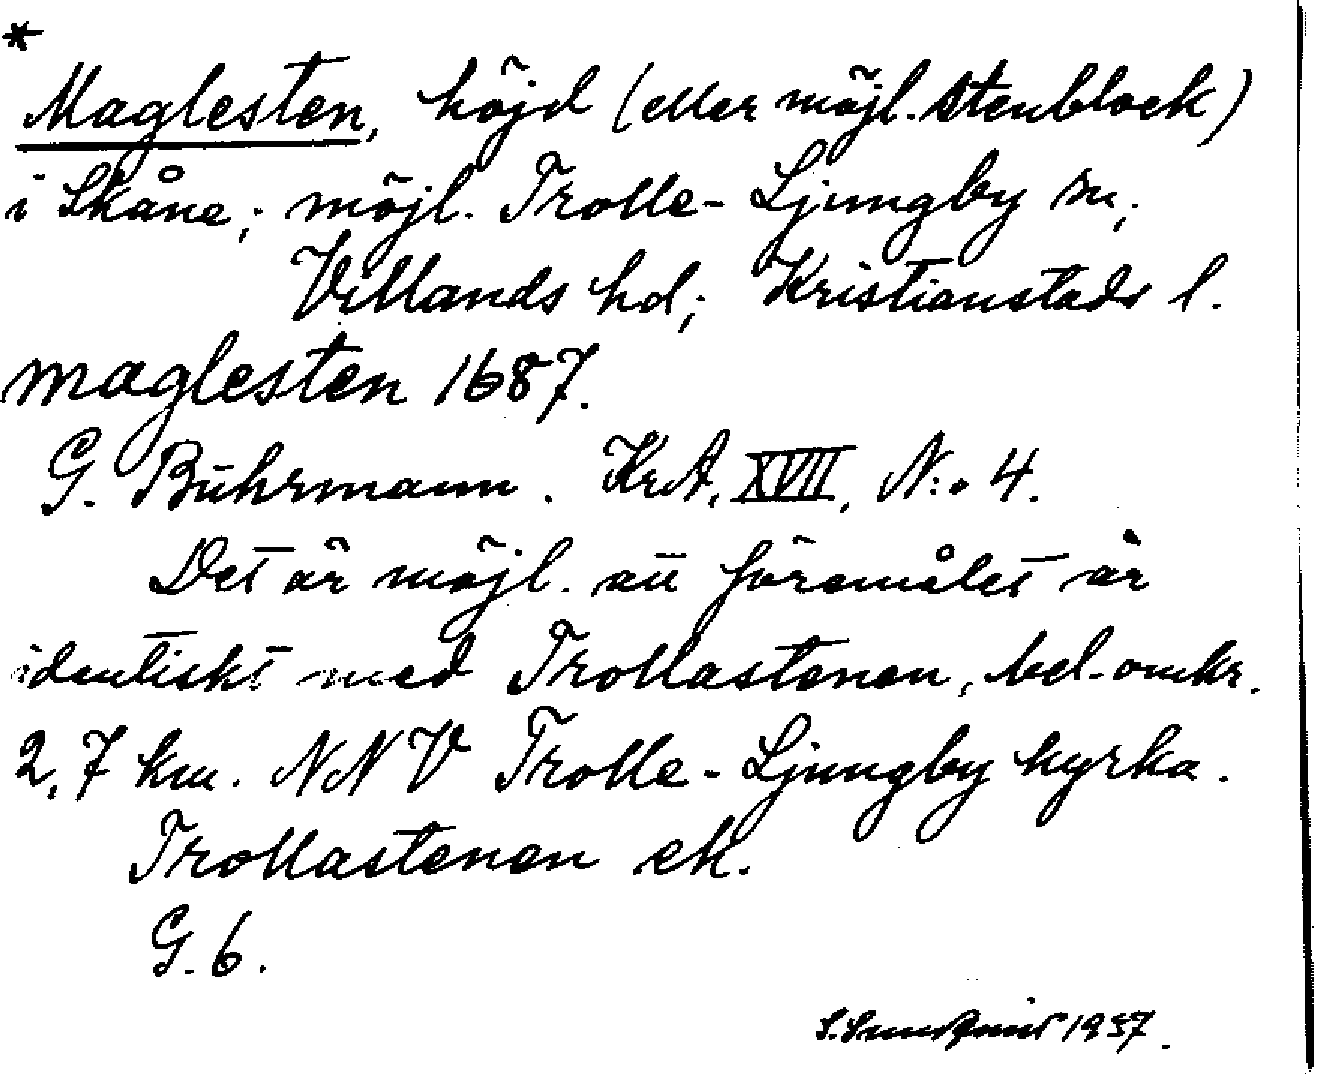 *
Maglesten, höjd (eller möjl. stenblock)
i Skåne; möjl. Trolle-Ljungby sn,
Villands hd; Kristianstads l.
maglesten 1687.
G. Buhrmann. KrA, XVII, N:o 4.
Det är möjl. att föremålet är
identiskt med Trollastenen, bel. omkr.
2,7 km. NNV Trolle-Ljungby kyrka.
Trollastenen ek.
G. 6.
S. Sundqvist 1937.